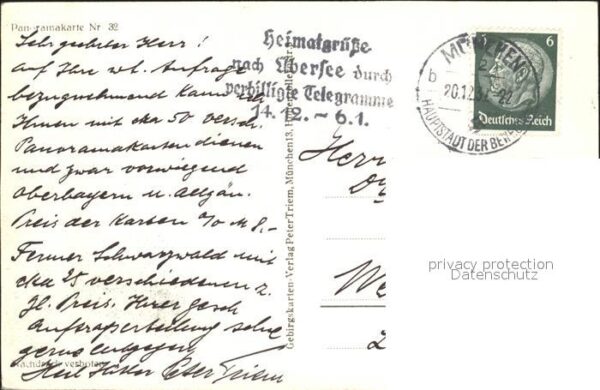 Panoramakarte Nr 32
Sehr geehrter Herr!
auf Ihre w. Anfrage
bezugnehmend kann ich
Ihnen mit cka 50 versch.
Panoramakarten dienen
und zwar vorwiegend
Oberbayern u. Allgäu.
Preis der Karten % M 8,-
Ferner Schwarzwald mit
cka 25 verschiedenen z.
gl. Preis. Ihrer gesch
Auftragserteilung sehe
gerne entgegen
Nachdruck verboten
Heil Hitler Peter Triem
Gebirgskarten-Verlag Peter Triem, München 13,
Heimatgrüße
nach Übersee durch
verbilligte Telegramme
14.12. - 6.1.
MÜNCHEN
b
20.12.
HAUPTSTADT DER BEWE
6 6
Deutsches Reich
Herr
We
2
privacy protection
Datenschutz